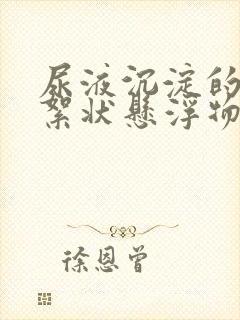 尿液沉淀的
絮状悬浮物
徐恩曾